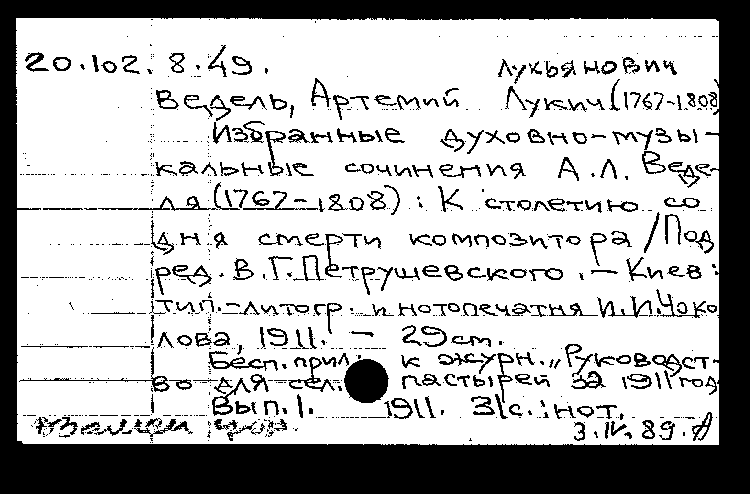 20.102.8.49. Лукьянович
Ведель, Артемий Лукич (1767-1808)
Избранные духовно-музы-
кальные сочинения А.Л. Веде-
ля (1767-1808): К столетию со
дня смерти композитора / Под
ред. В.Г. Петрушевского. - Киев:
тип.-литогр. и нотопечатня И.И. Чоко
лова, 1911. - 29 cт.
Бесп. прил. к журн. „Руководст-
во для сел. пастырей за 1911 год
Вып. 1. 1911. 31с.: нот.
Взамен
3.IV.89.